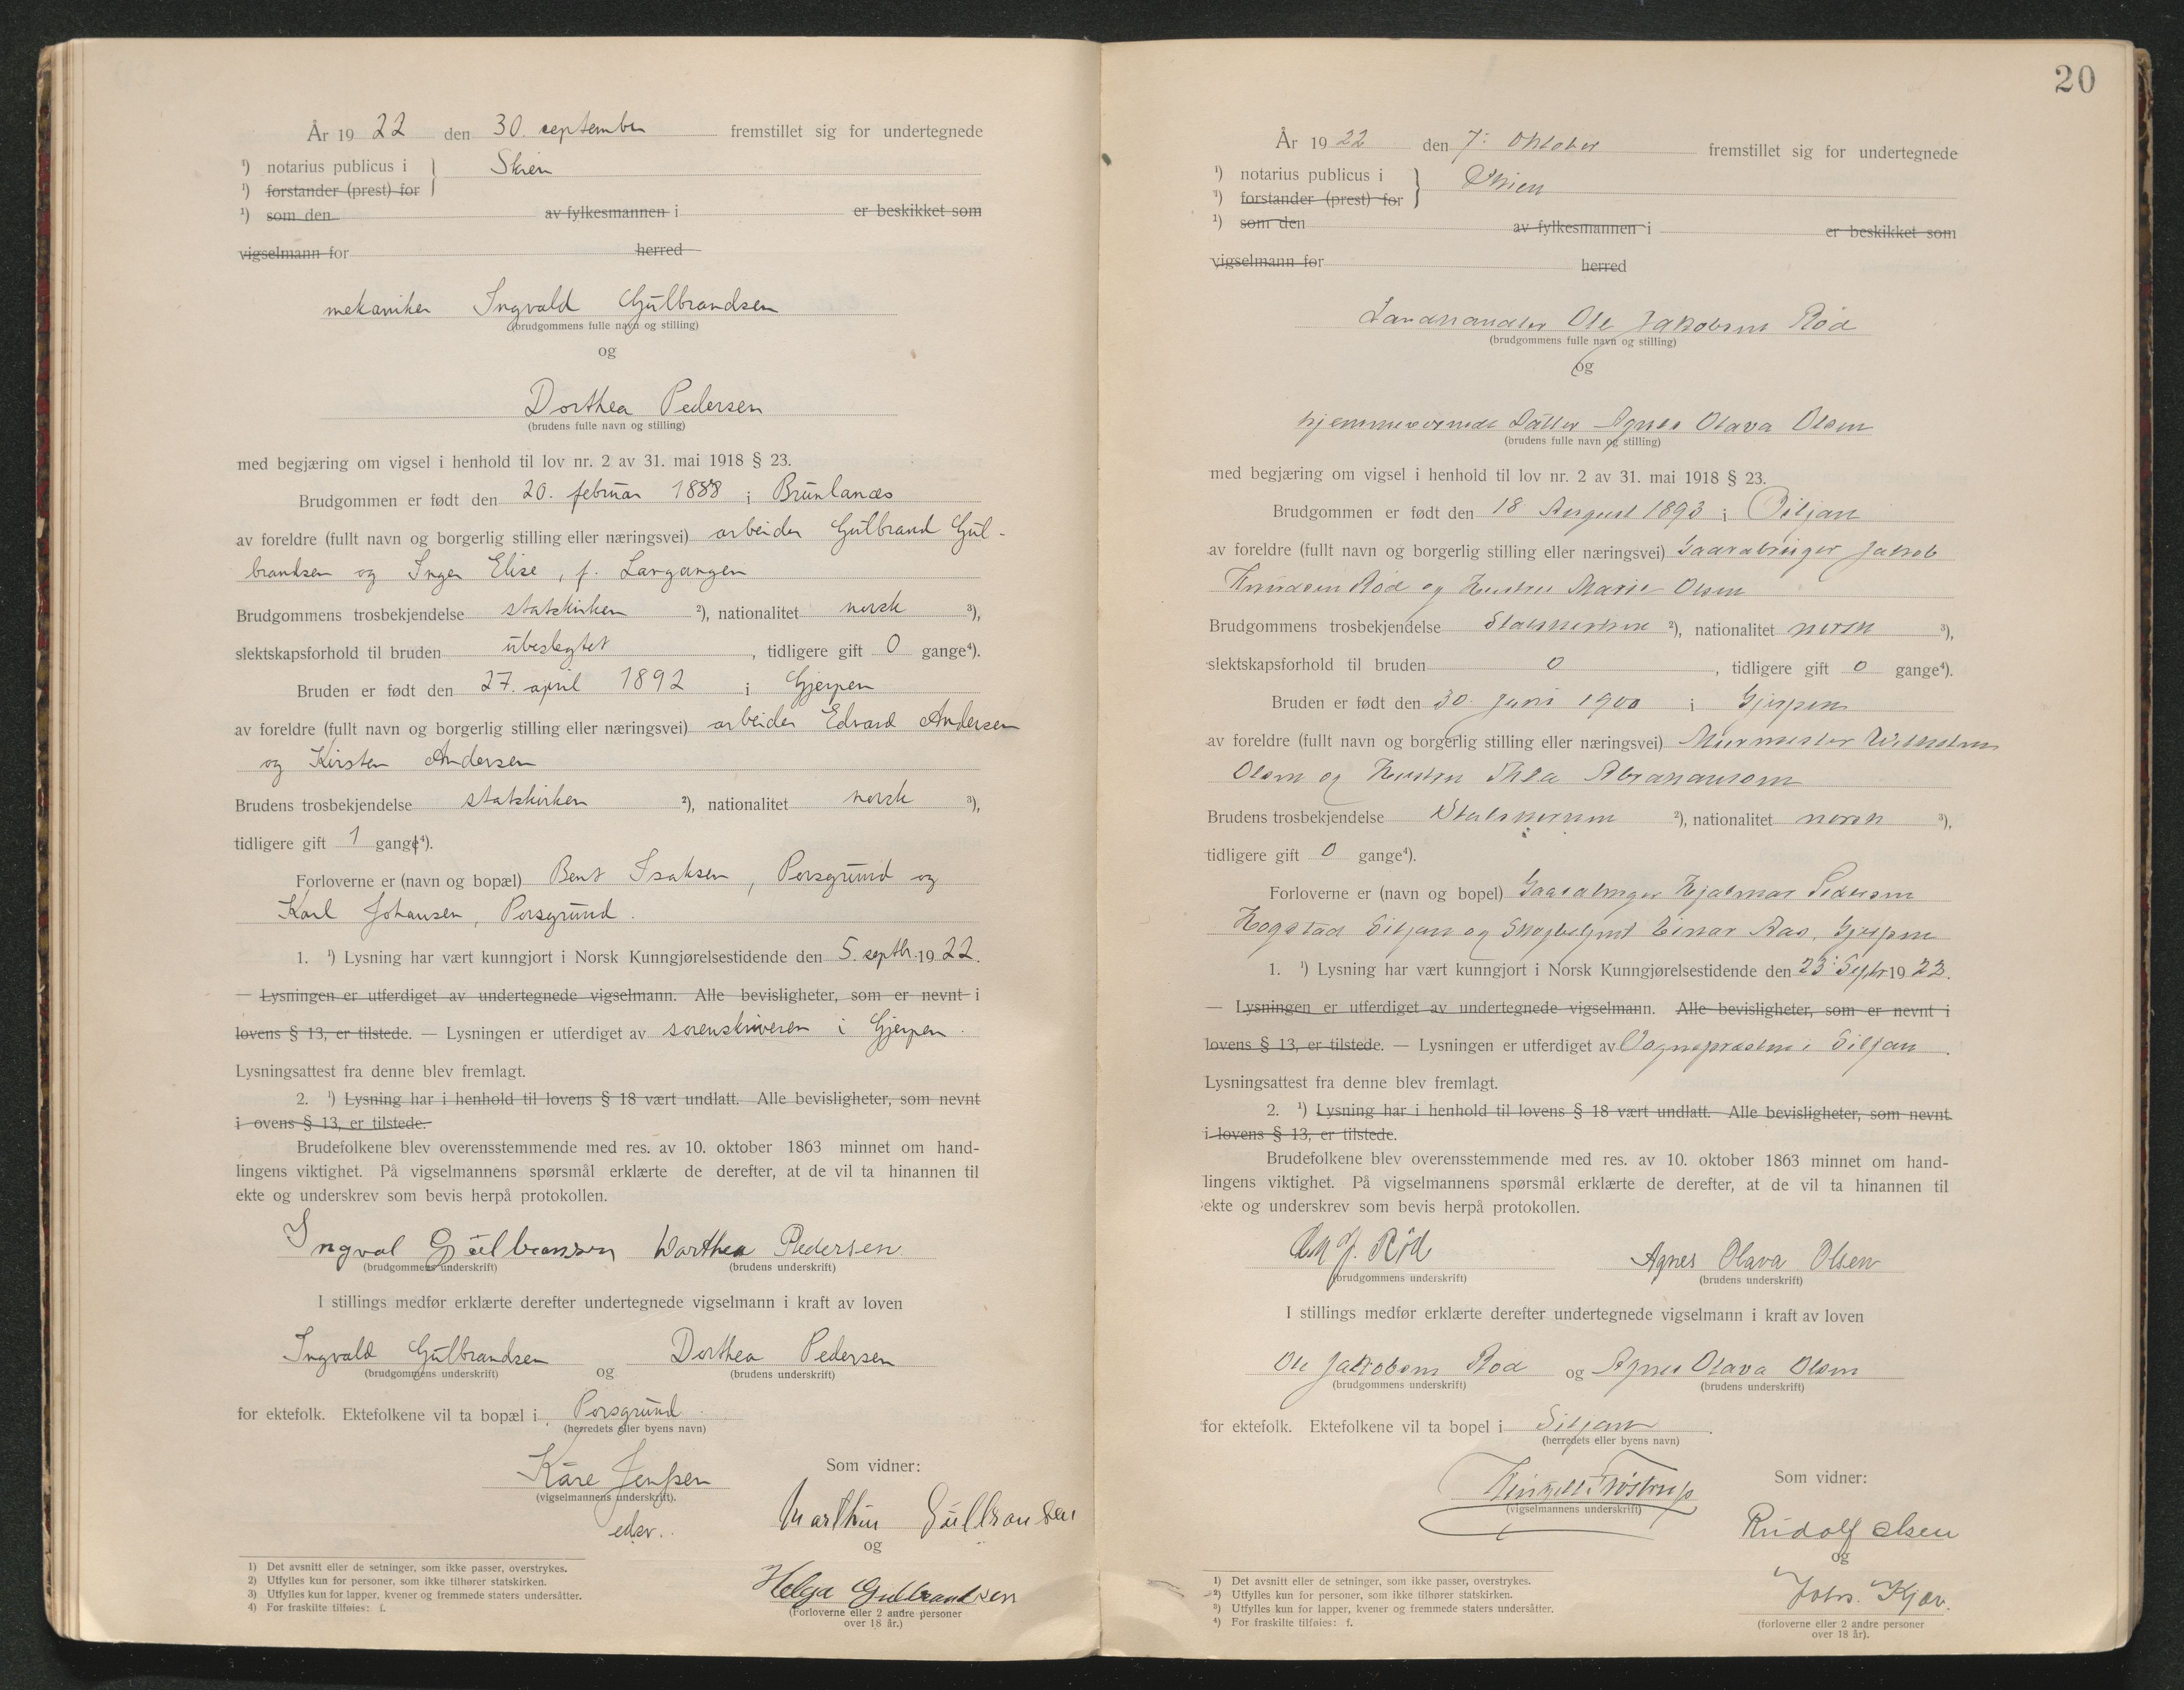 År 19 22 den 30. september fremstillet sig for undertegnede
¹) notarius publicus i } Skien
¹) forstander (prest) for
¹) som den av fylkesmannen i er beskikket som
vigselmann for herred
mekaniker Ingvald Gulbrandsen
(brudgommens fulle navn og stilling)
og
Dorthea Pedersen
(brudens fulle navn og stilling)
med begjæring om vigsel i henhold til lov nr. 2 av 31. mai 1918 § 23.
Brudgommen er født den 20. februar 1888 i Brunlanes
av foreldre (fullt navn og borgerlig stilling eller næringsvei) arbeider Gulbrand Gul-
brandsen og Inger Elise, f. Langangen
Brudgommens trosbekjendelse statskirken ²), nationalitet norsk ³),
slektskapsforhold til bruden ubeslegtet, tidligere gift 0 gange⁴).
Bruden er født den 27. april 1892 i Gjerpen
av foreldre (fullt navn og borgerlig stilling eller næringsvei) arbeider Edvard Andersen
og Kirsten Andersen
Brudens trosbekjendelse statskirken ²), nationalitet norsk ³),
tidligere gift 1 gange⁴).
Forloverne er (navn og bopæl) Bent Isaksen, Porsgrund og
Karl Johansen, Porsgrund.
1. ¹) Lysning har vært kunngjort i Norsk Kunngjørelsestidende den 5. septbr. 1922.
— Lysningen er utferdiget av undertegnede vigselmann. Alle bevisligheter, som er nevnt i
lovens § 13, er tilstede. — Lysningen er utferdiget av sorenskriveren i Gjerpen.
Lysningsattest fra denne blev fremlagt.
2. ¹) Lysning har i henhold til lovens § 18 vært undlatt. Alle bevisligheter, som nevnt
i ovens § 13, er tilstede.
Brudefolkene blev overensstemmende med res. av 10. oktober 1863 minnet om hand-
lingens viktighet. På vigselmannens spørsmål erklærte de derefter, at de vil ta hinannen til
ekte og underskrev som bevis herpå protokollen.
Ingval Gulbransen Dorthea Pedersen
(brudgommens underskrift) (brudens underskrift)
I stillings medfør erklærte derefter undertegnede vigselmann i kraft av loven
Ingvald Gulbrandsen og Dorthea Pedersen
(brudgommens underskrift) (brudens underskrift)
for ektefolk. Ektefolkene vil ta bopæl i Porsgrund.
(herredets eller byens navn)
Kåre Jenssen
(vigselmannens underskrift).
edsv.
Som vidner:
Marthin Gullbransen
og
Helga Gulbrandsen
(Forloverne eller 2 andre personer
over 18 år.)
1) Det avsnitt eller de setninger, som ikke passer, overstrykes.
2) Utfylles kun for personer, som ikke tilhører statskirken.
3) Utfylles kun for lapper, kvener og fremmede staters undersåtter.
4) For fraskilte tilføies: f.
20
År 1922 den 7: Oktober fremstillet sig for undertegnede
¹) notarius publicus i } Skien
¹) forstander (prest) for
¹) som den av fylkesmannen i er beskikket som
vigselmann for herred
Landhandler Ole Jakobsen Röd
(brudgommens fulle navn og stilling)
og
hjemmeværende Datter Agnes Olava Olsen
(brudens fulle navn og stilling)
med begjæring om vigsel i henhold til lov nr. 2 av 31. mai 1918 § 23.
Brudgommen er født den 18 August 1893 i Siljan
av foreldre (fullt navn og borgerlig stilling eller næringsvei) Gaardbruger Jakob
Knudsen Röd og Hustru Marie Olsen
Brudgommens trosbekjendelse Statskirken ²), nationalitet norsk ³),
slektskapsforhold til bruden 0, tidligere gift 0 gange⁴).
Bruden er født den 30. Juni 1900 i Gjerpen
av foreldre (fullt navn og borgerlig stilling eller næringsvei) Murmester Wilhelm
Olsen og Hustru Thea Abrahamsen
Brudens trosbekjendelse Statskirken ²), nationalitet norsk ³),
tidligere gift 0 gange⁴).
Forloverne er (navn og bopel) Gaardbruger Hjalmar Pedersen
Hogstad Siljan og Skogbetjent Einar Aas, Gjerpen
1. ¹) Lysning har vært kunngjort i Norsk Kunngjørelsestidende den 23: Septr. 1922.
— Lysningen er utferdiget av undertegnede vigselmann. Alle bevisligheter, som er nevnt i
lovens § 13, er tilstede. — Lysningen er utferdiget av Sognepresten i Siljan.
Lysningsattest fra denne blev fremlagt.
2. ¹) Lysning har i henhold til lovens § 18 vært undlatt. Alle bevisligheter, som nevnt
i lovens § 13, er tilstede.
Brudefolkene blev overensstemmende med res. av 10. oktober 1863 minnet om hand-
lingens viktighet. På vigselmannens spørsmål erklærte de derefter, at de vil ta hinannen til
ekte og underskrev som bevis herpå protokollen.
J. Röd Agnes Olava Olsen
(brudgommens underskrift) (brudens underskrift)
I stillings medfør erklærte derefter undertegnede vigselmann i kraft av loven
Ole Jakobsen Röd og Agnes Olava Olsen
(brudgommens underskrift) (brudens underskrift)
for ektefolk. Ektefolkene vil ta bopel i Siljan.
(herredets eller byens navn)
Frøstrup
(vigselmannens underskrift)
Som vidner:
Rudolf Olsen
og
Johs. Kjær.
(forloverne eller 2 andre personer
over 18 år).
1) Det avsnitt eller de setninger, som ikke passer, overstrykes.
2) Utfylles kun for personer, som ikke tilhører statskirken.
3) Utfylles kun for lapper, kvener og fremmede staters undersåtter.
4) For fraskilte tilføies: f.